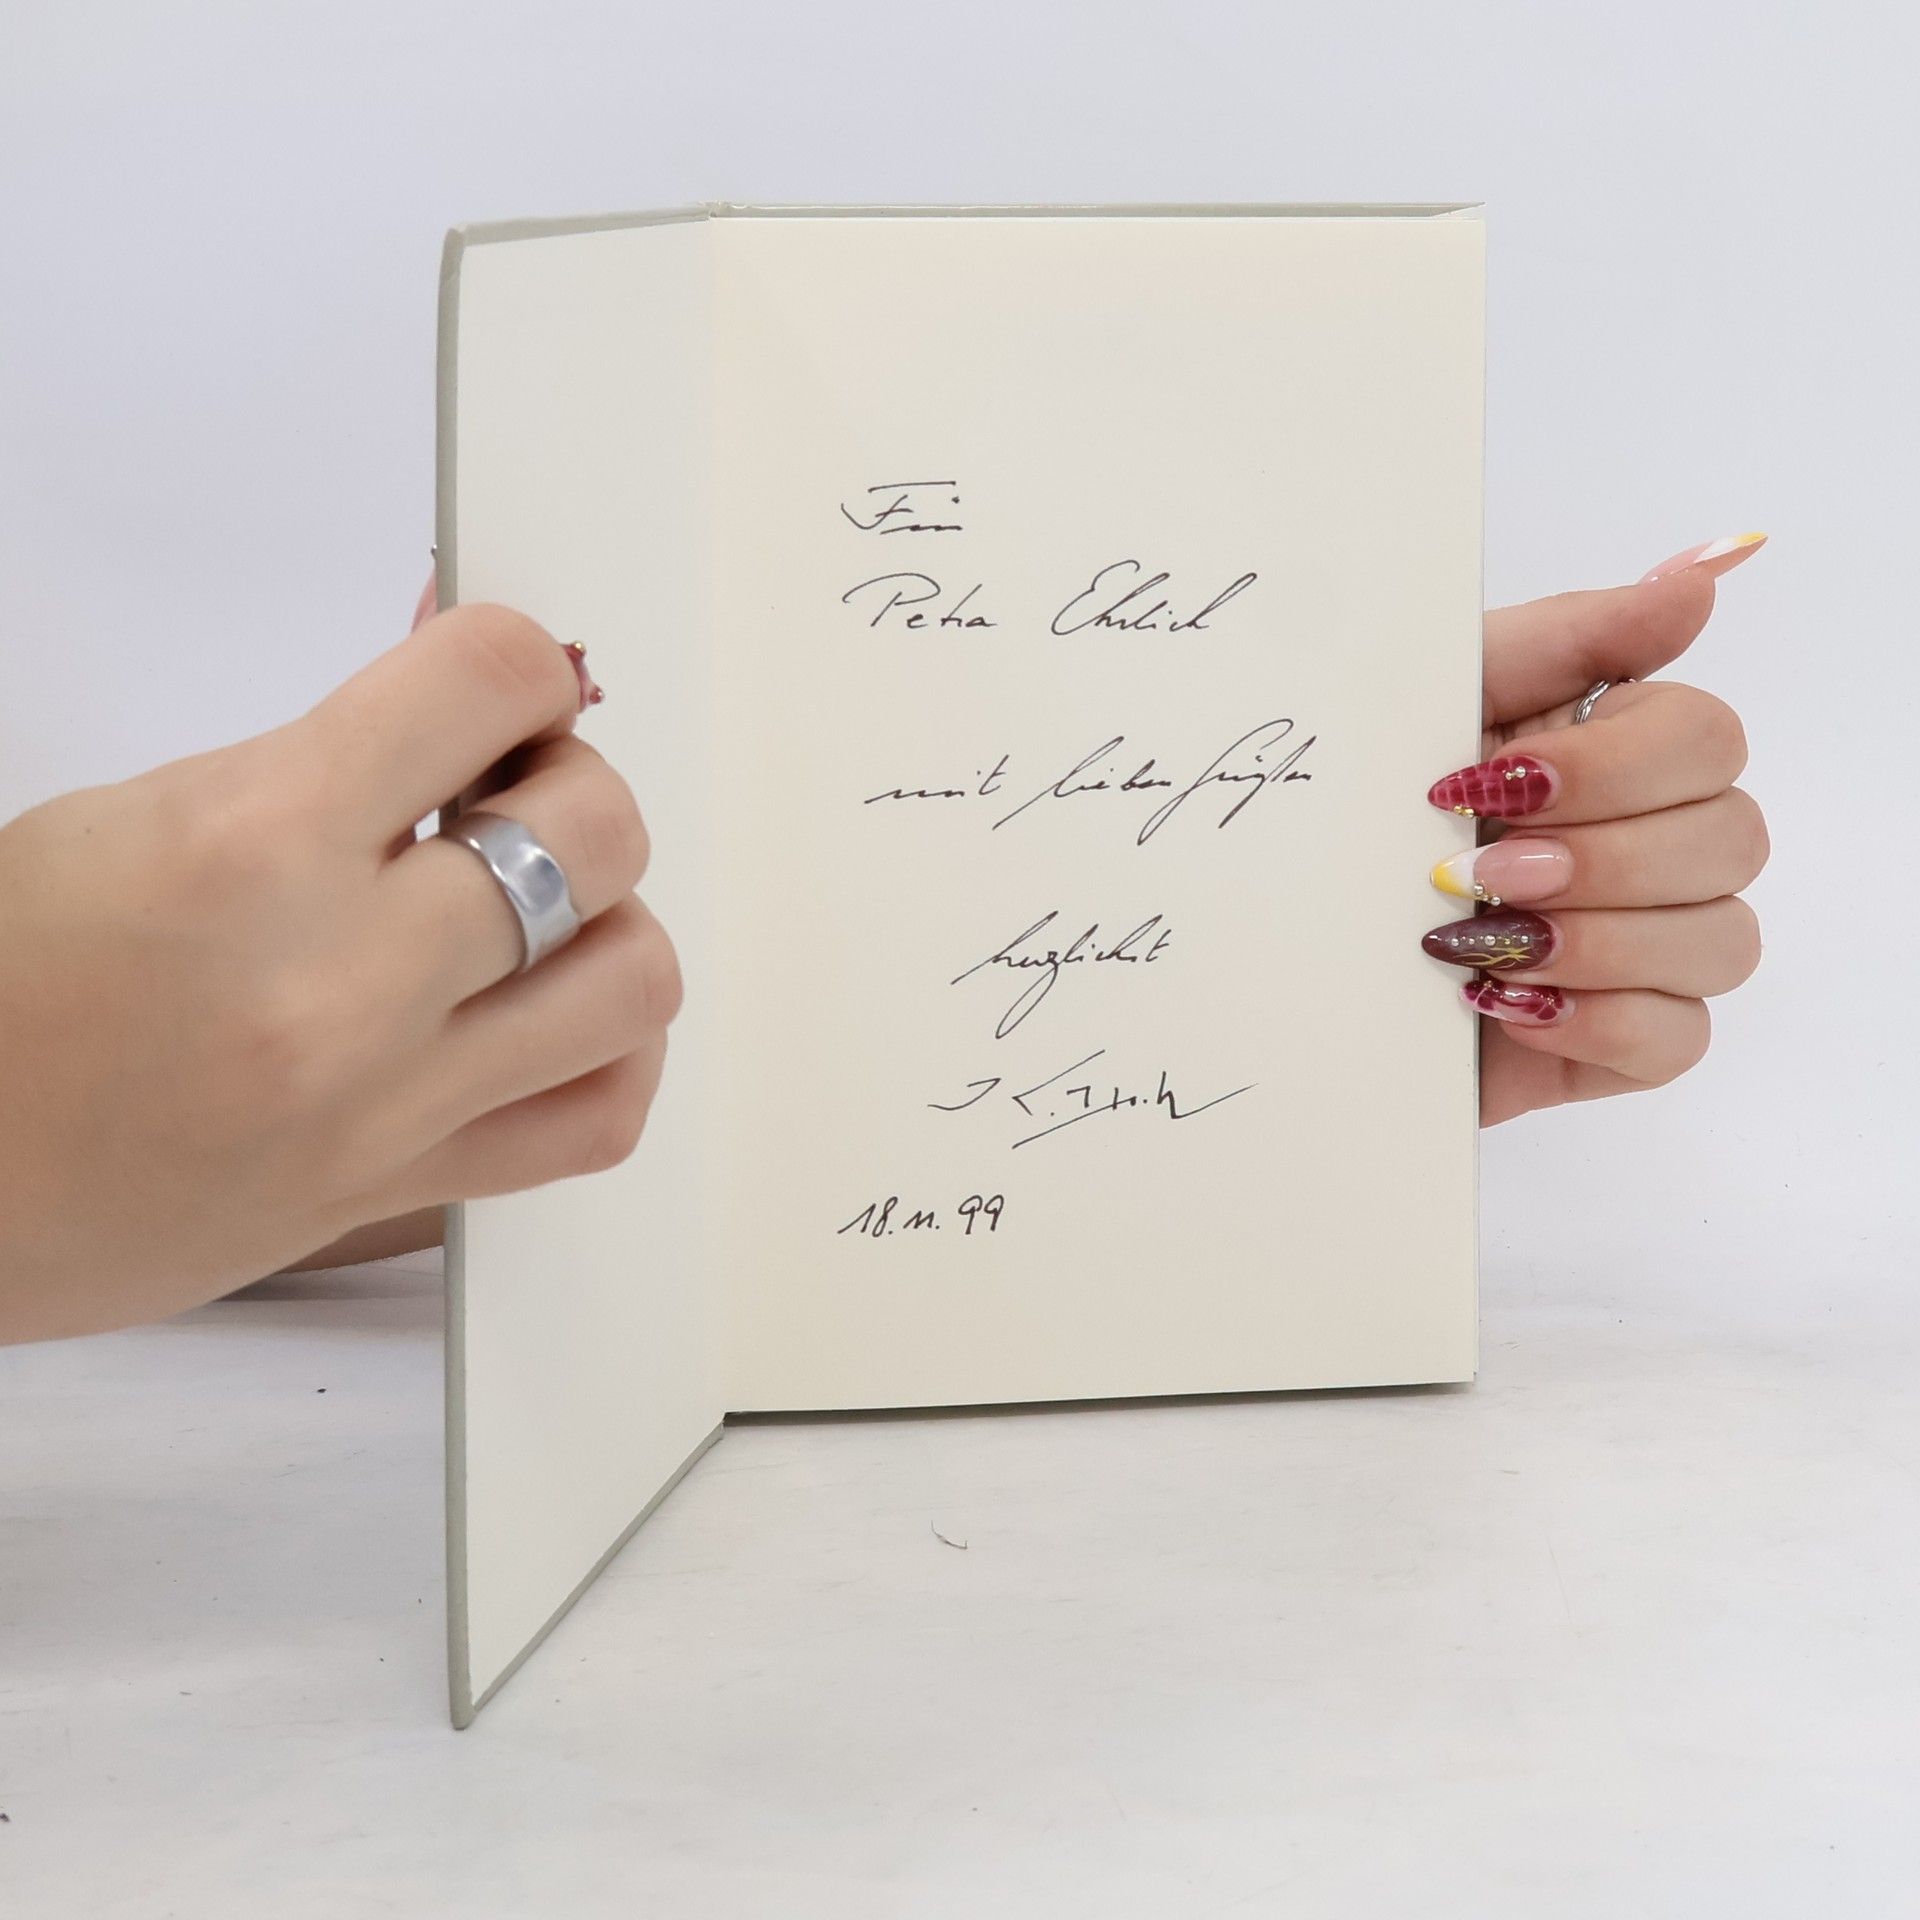 Für
Petra Ehrlich
mit lieben Grüßen
herzlichst
18.11.99